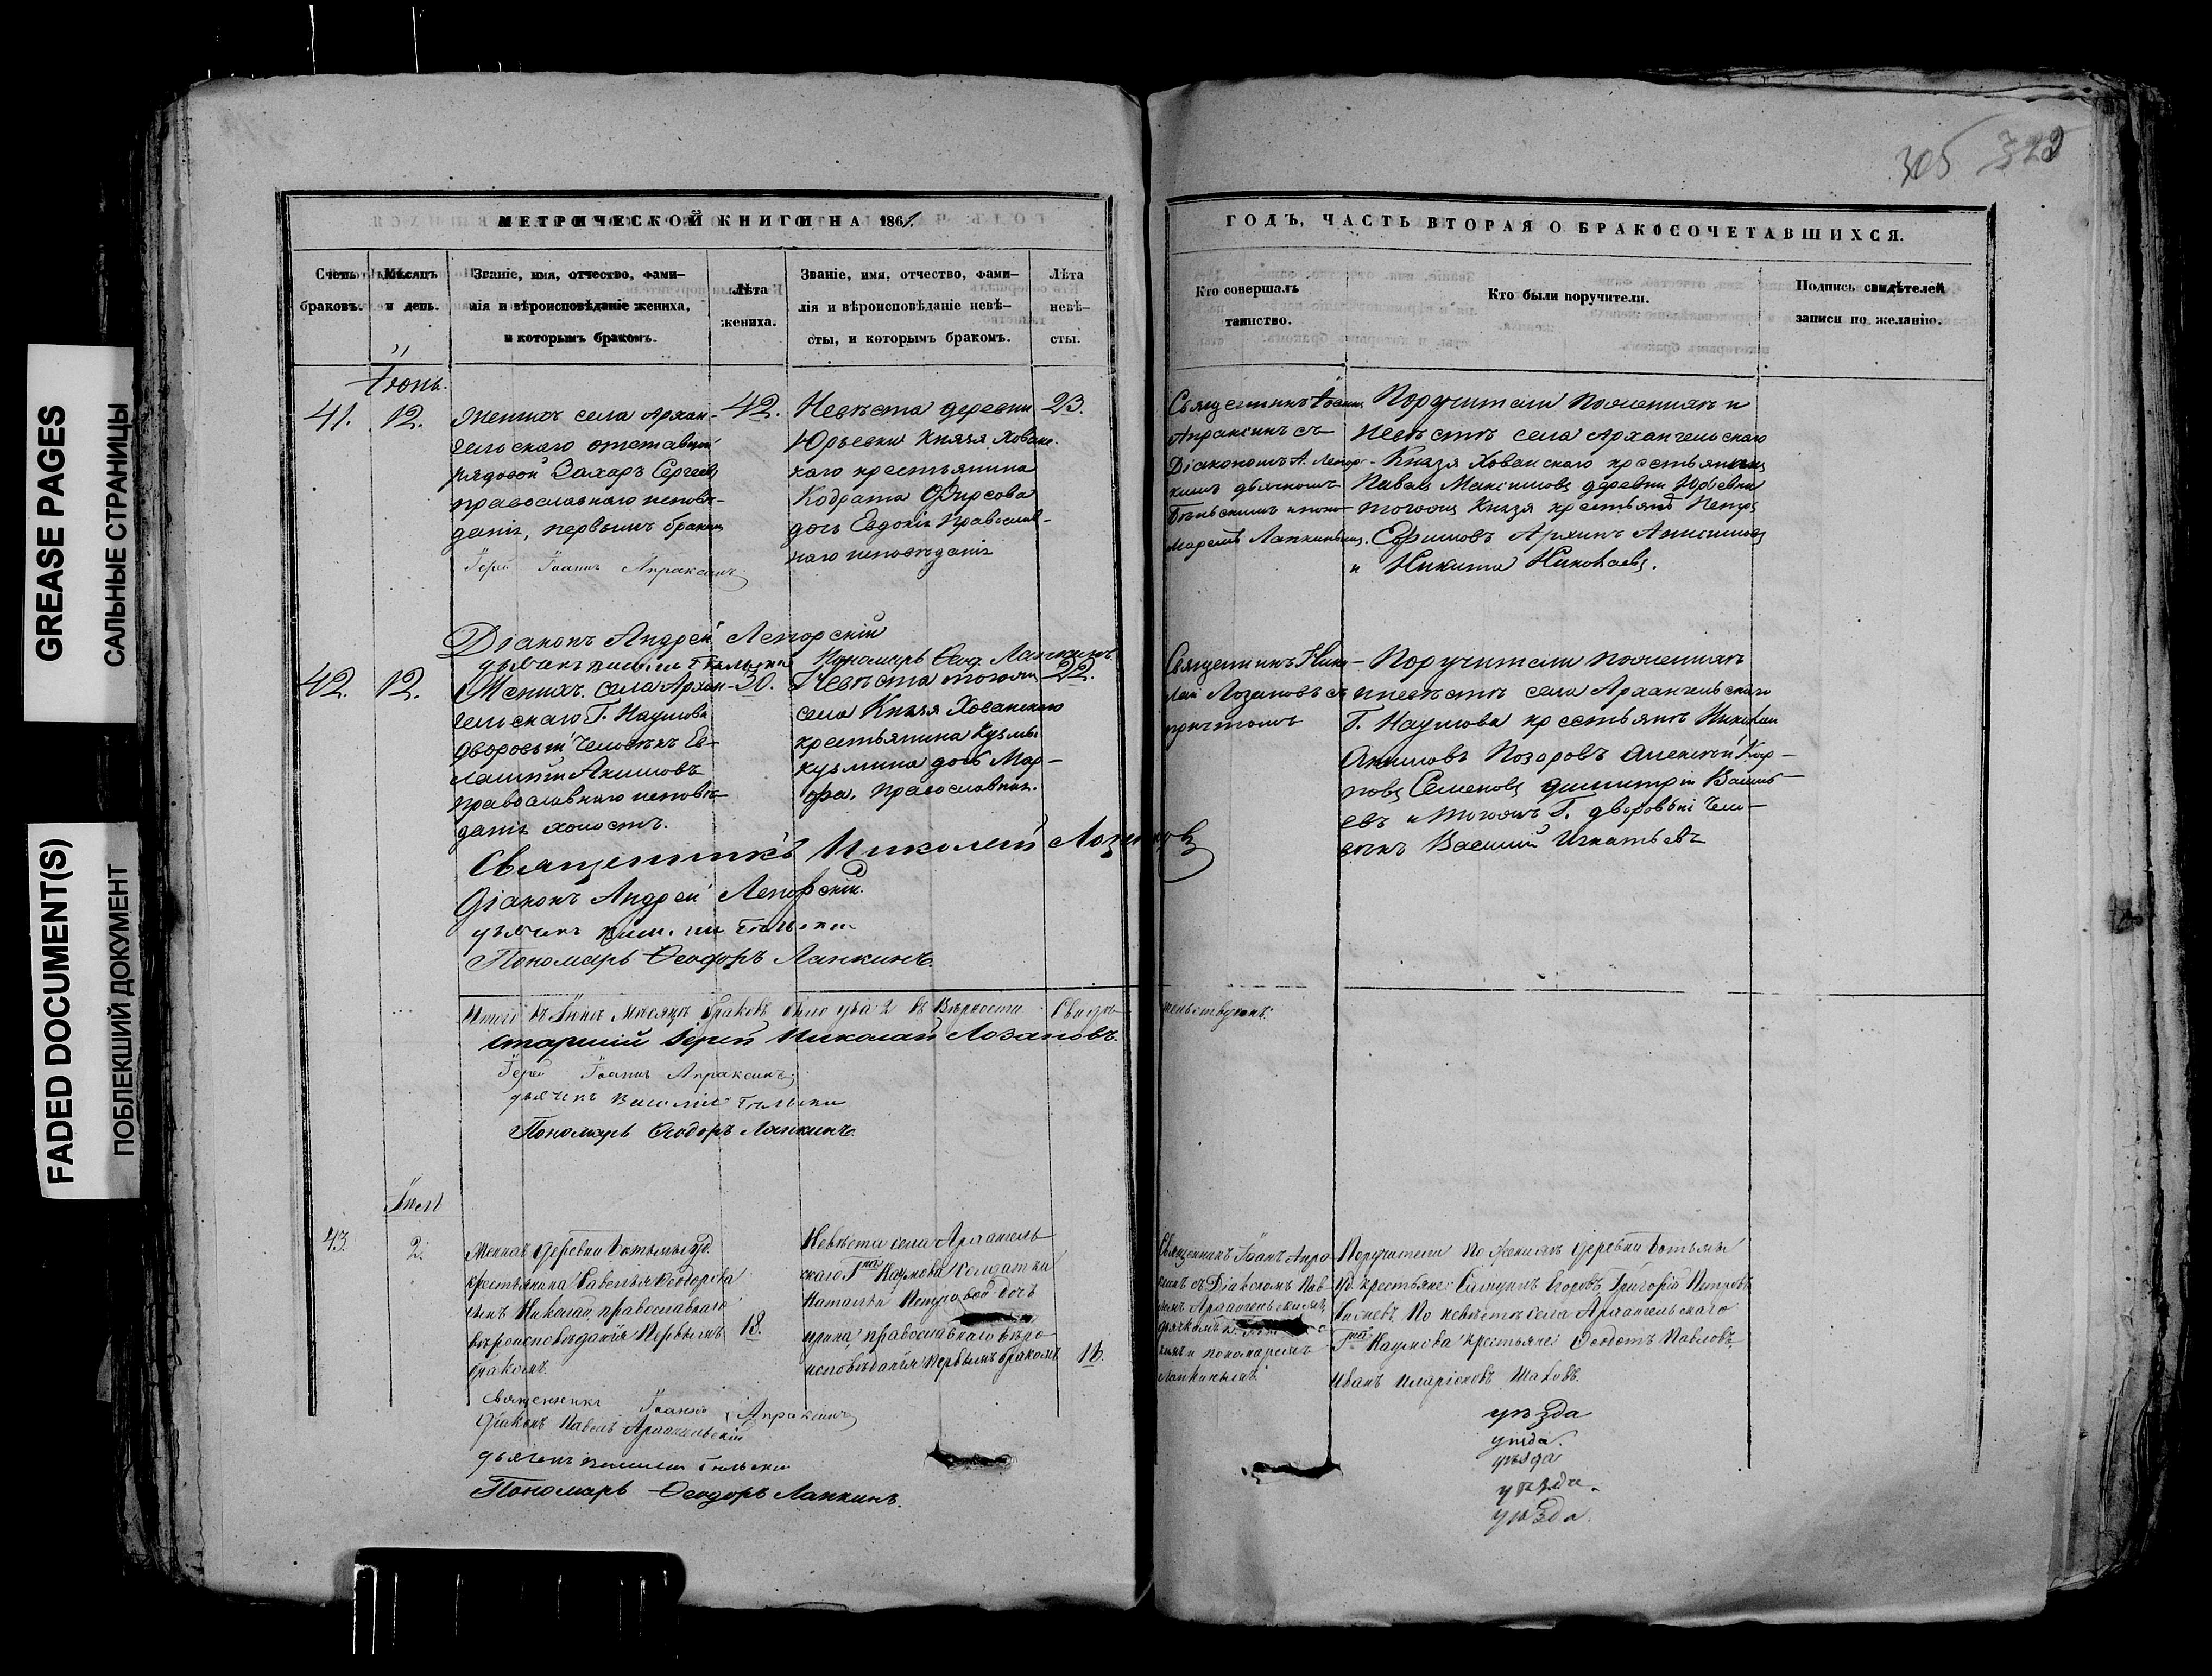 GREASE PAGES
САЛЬНЫЕ СТРАНИЦЫ
FADED DOCUMENT(S)
ПОБЛЕКШИЙ ДОКУМЕНТ
305 329
МЕТРИЧЕСКОЙ КНИГИ НА 1861.
ГОДЪ, ЧАСТЬ ВТОРАЯ О БРАКОСОЧЕТАВШИХСЯ.
Счетъ браковъ.
Мѣсяцъ и день.
Званіе, имя, отчество, фами-
лія и вѣроисповѣданіе жениха,
и которымъ бракомъ.
Лѣта
жениха.
Званіе, имя, отчество, фами-
лія и вѣроисповѣданіе невѣ-
сты, и которымъ бракомъ.
Лѣта
невѣ-
сты.
Кто совершалъ
таинство.
Кто были поручители.
Подпись свидѣтелей
записи по желанію.
Іюнь.
41.
12.
Женихъ села Архан-
гельскаго отставной
рядовой Захаръ Сергеевъ
православнаго исповѣ-
данія, первымъ бракомъ
42.
Невѣста деревни
Юрьевки Князя Хованс-
каго крестьянина
Кодрата Фирсова
дочь Евдокія православ-
наго исповѣданія
23.
Священникъ Іоаннъ
Апраксинъ съ
Діакономъ А. Лепор-
скимъ дьячкомъ
и поно-
маремъ Лапкинымъ.
Поручители по женихѣ и
невѣстѣ села Архангельскаго
Князя Хованскаго крестьянинъ
Павелъ Максимовъ деревни Юрьевки
тогожъ Князя крестьяне Петръ
Ефимовъ Анисимовъ
и Никита Николаевъ.
Іерей Іоаннъ Апраксинъ
Діаконъ Андрей Лепорскій
дьячекъ Василій
Пономарь Ѳеод. Лапкинъ.
42.
12.
Женихъ села Архан-
гельскаго Г. Наумова
дворовый человѣкъ Ев-
Акимовъ
православнаго исповѣ-
данія холостъ.
30.
Невѣста тогожъ
села Князя Хованскаго
крестьянина Кузьмы
Кузьмина дочь Мар-
фа, православная.
22.
Священникъ Нико-
лай Лозановъ съ
причтомъ
Поручители по женихѣ
и невѣстѣ села Архангельскаго
Г. Наумова крестьяне Николай
Акимовъ Назаровъ Алексей Кар-
повъ Семеновъ Димитрій Василь-
евъ и тогожъ Г. дворовый чело-
вѣкъ Василій Игнатьевъ
Священникъ Николай Лозановъ
Діаконъ Андрей Лепорскій
дьячекъ Василій
Пономарь Ѳеодоръ Лапкинъ.
Итого въ Іюнѣ мѣсяцѣ браковъ было два 2 въ вѣрности свидѣ-
тельствуютъ:
Старшій Іерей Николай Лозановъ.
Іерей Іоаннъ Апраксинъ
дьячекъ Василій
Пономарь Ѳеодоръ Лапкинъ.
Іюль
43.
2.
Женихъ деревни Ботьмы уд.
крестьянина Савелья Ѳеодорова
сынъ Николай православнаго
вѣроисповѣданія первымъ
бракомъ.
18.
Невѣста села Архангель-
скаго Гна Наумова солдатки
Натальи Петровой дочь
Ирина православнаго вѣро-
исповѣданія первымъ бракомъ
16.
Священникъ Іоаннъ Апра-
ксинъ съ Діакономъ Пав-
ломъ Архангельскимъ,
дьячкомъ
и пономаремъ
Лапкинымъ
Поручители по женихѣ деревни Ботьмы
уд. крестьяне: Егоровъ, Григорій Петровъ
По невѣстѣ села Архангельскаго
Гна Наумова крестьяне: Ѳедотъ Павловъ,
Иванъ Иларіоновъ
Священникъ Іоаннъ Апраксинъ
Діаконъ Павелъ Архангельскій
дьячекъ Василій
Пономарь Ѳеодоръ Лапкинъ.
уѣзда
уѣзда.
уѣзда
уѣзда.
уѣзда.